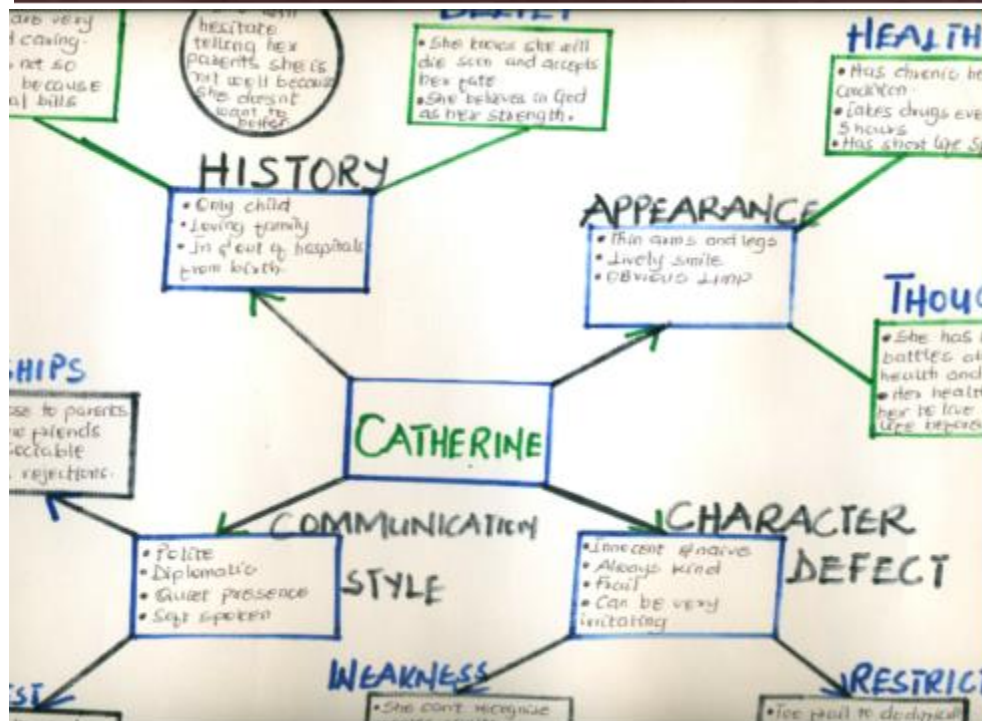 are very
caring.
not so
because
al bills
hesitate
telling her
parents she is
not well because
she doesnt
want to
bother
BELIEF
• She knows she will
die soon and accepts
her fate
• She believes in God
as her strength.
HEALTH
• Has chronic
condition.
• Takes drugs
5 hours
• Has short life
HISTORY
• Only child
• Loving family
• In & out of hospitals
from birth.
APPEARANCE
• Thin arms and legs
• Lively smile
• OBVIOUS LIMP
THOUG
• She has
battles
health and
• Her health
her to live
life
SHIPS
to parents
friends
sociable
rejections.
CATHERINE
COMMUNICATION
STYLE
• Polite
• Diplomatic
• Quiet presence
• Soft spoken
CHARACTER
DEFECT
• Innocent & naive
• Always kind
• Frail
• Can be very
irritating
WEAKNESS
• She cant recognize
RESTRICT
• Too frail to
EST